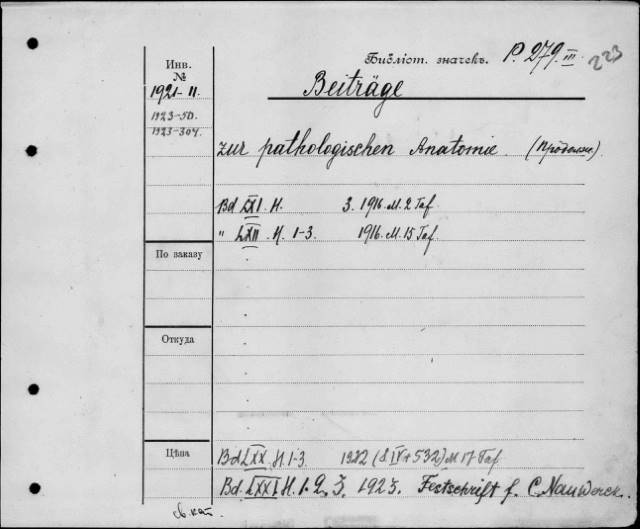 Библіот. значекъ. P. 279 III 223
Инв. №
1921-11.
1923-50.
1923-304.
Beiträge
zur pathologischen Anatomie. (Продолж.)
Bd LXI. H. 3. 1916. M. 2 Taf.
" LXII. H. 1-3. 1916. M. 15 Taf.
По заказу
Откуда
Цѣна
Bd LXX. H. 1-3. 1922 (S IV + 532) M 17 Taf
Bd. LXXI H. 1. 2. 3. 1923. Festschrift f. C. Nauwerck.
св. кат.